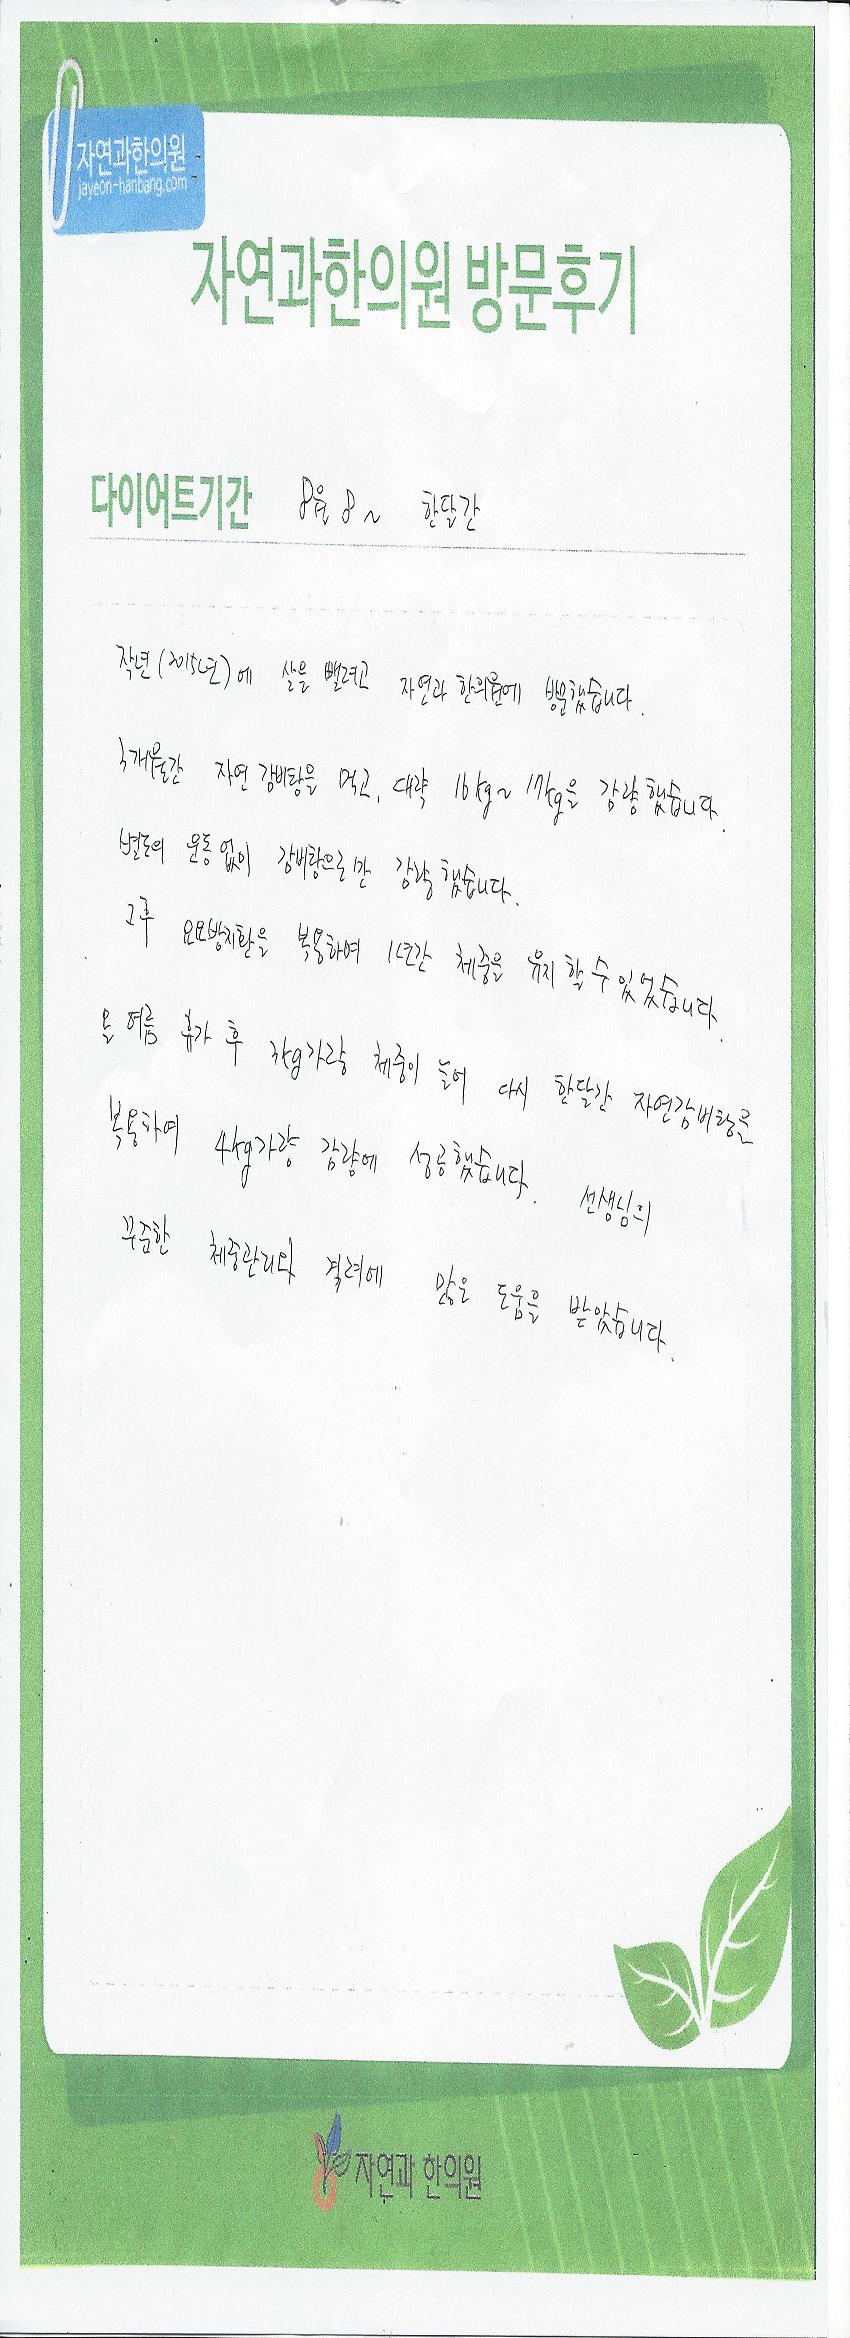 자연과한의원
jayeon-hanbang.com
자연과한의원 방문후기
다이어트기간 8월 8~ 한달간
작년(2015년)에 살을 뺄려고 자연과 한의원에 방문했습니다.
3개월간 자연감비탕을 먹고, 대략 16kg~17kg을 감량했습니다.
별도의 운동 없이 감비탕으로만 감량했습니다.
그후 요요방지환을 복용하여 1년간 체중을 유지할 수 있었습니다.
올 여름 휴가 후 3kg가량 체중이 늘어 다시 한달간 자연감비탕을
복용하여 4kg가량 감량에 성공했습니다. 선생님의
꾸준한 체중관리와 격려에 많은 도움을 받았습니다.
자연과 한의원